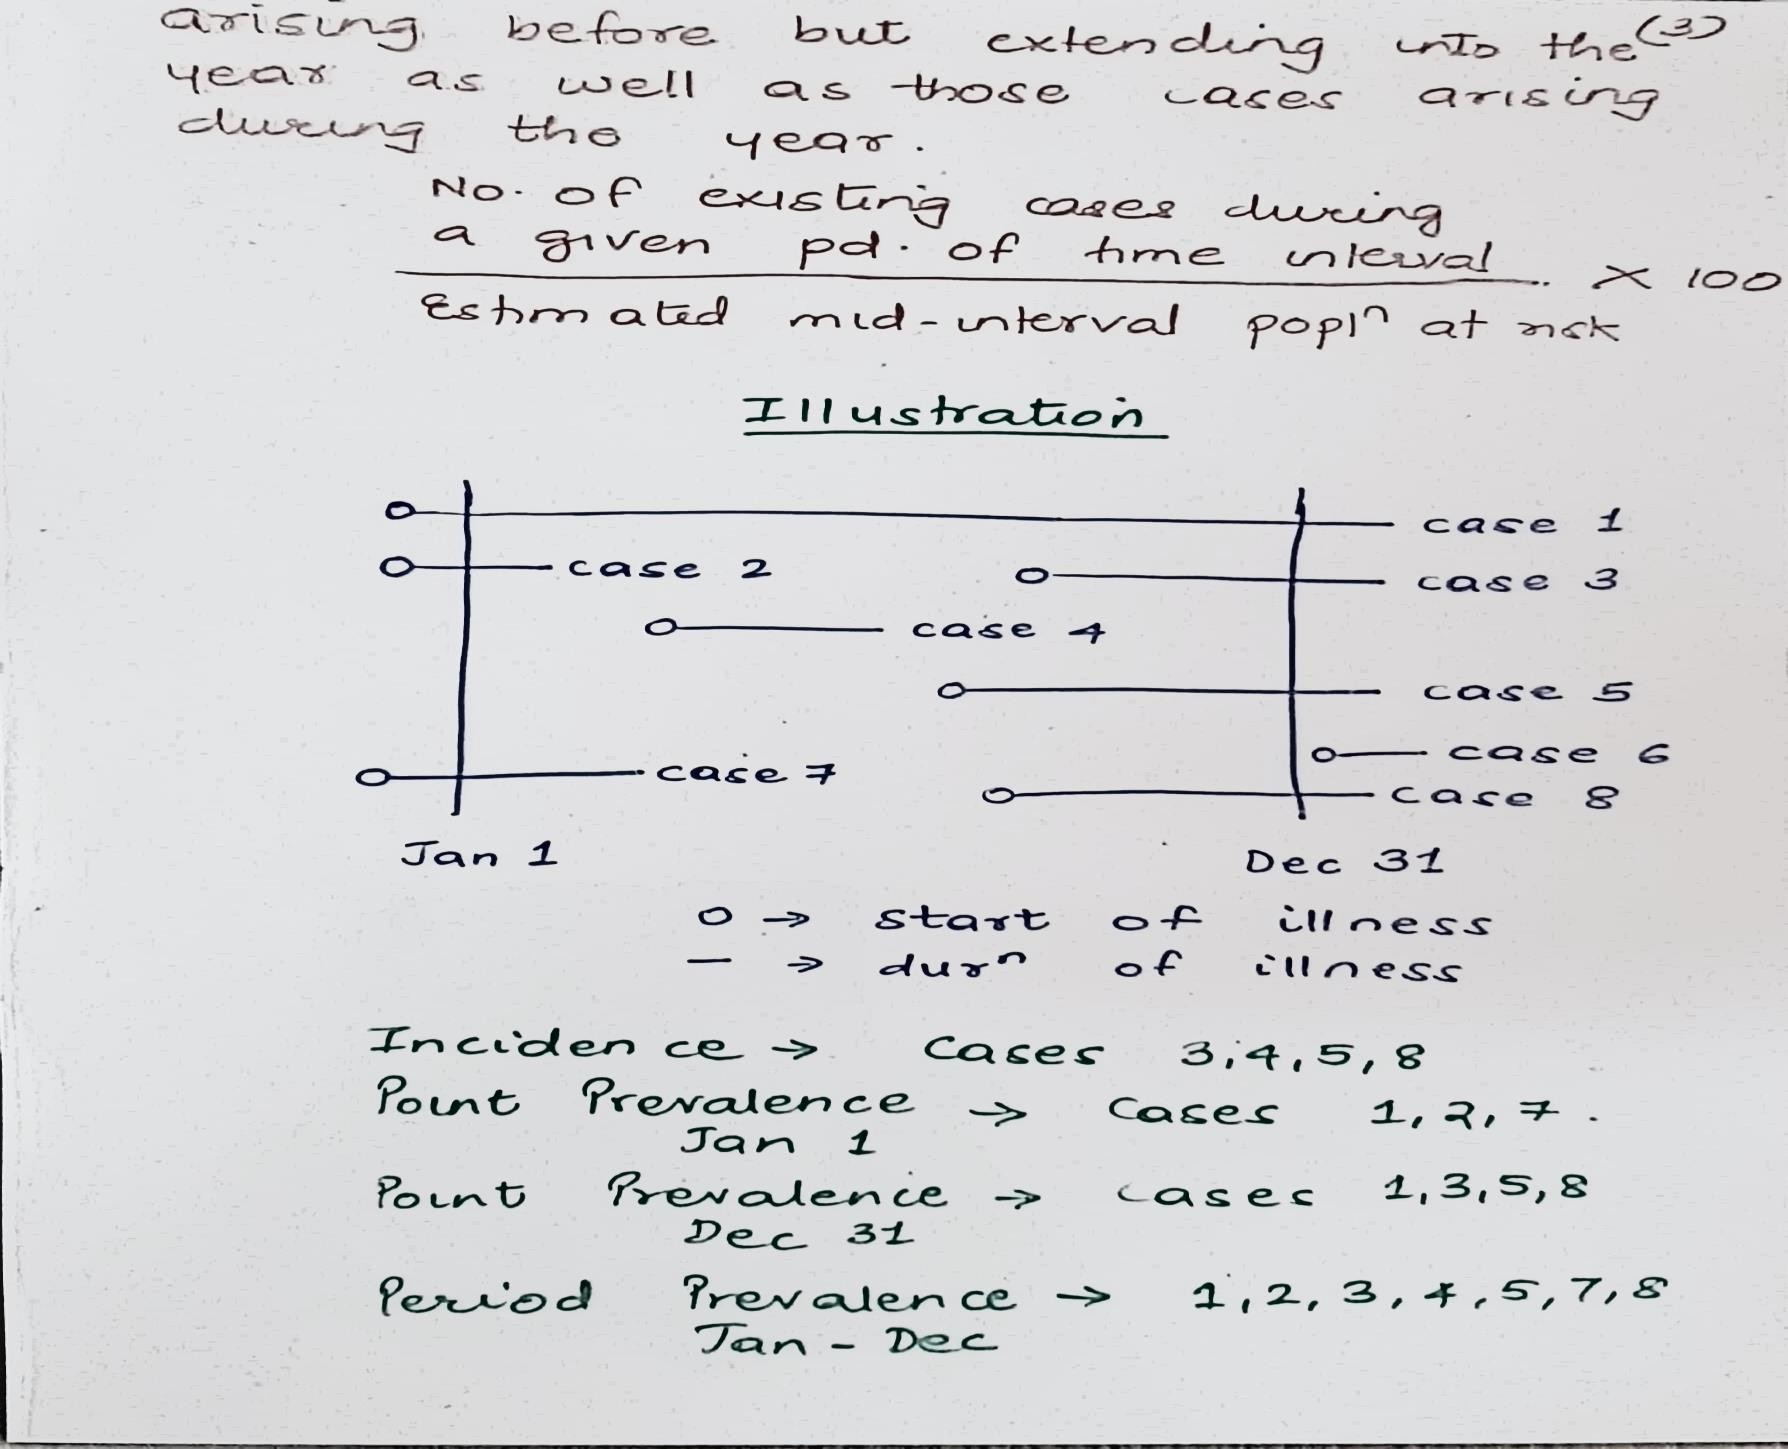 (3)
arising before but extending into the
year as well as those cases arising
during the year.
No. of existing cases during
a given pd. of time interval
x 100
Estimated mid-interval poplⁿ at risk
Illustration
case 1
case 2
case 3
case 4
case 5
case 6
case 7
case 8
Jan 1
Dec 31
o → start of illness
— → durⁿ of illness
Incidence → Cases 3,4,5,8
Point Prevalence → Cases 1,2,7.
Jan 1
Point Prevalence → cases 1,3,5,8
Dec 31
Period Prevalence → 1,2,3,4,5,7,8
Jan - Dec